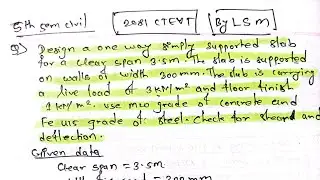 5th sem civil [2081 CTEVT] [By LSM]
Q) Design a one way simply supported slab
for a clear span 3.5m. The slab is supported
on walls of width 300mm. The slab is carrying
a live load of 3 KN/m² and floor finish
1 KN/m². use M20 grade of concrete and
Fe 415 grade of steel. Check for shear and
deflection.
Given data
Clear span = 3.5m
= 300mm